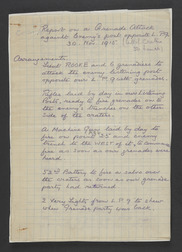 Report on a Grenade Attack
against Enemy's post opposite L.P. 9
30. Nov. 1915
Arrangements.
Lieut ROOKE and 6 grenadiers to
attack the enemy listening post
opposite over L.P. 9 with grenades.
Rifles laid by day in our listening
Post, ready to fire grenades on to
the enemy's trenches on the other
side of the crater.
A Machine Gun laid by day to
fire on point 35 and enemy
trench to the WEST of it, to commence
fire as soon as our grenades were
heard.
52nd Battery to fire a salvo over
the craters as soon as our grenade
party had returned
2 Very lights from L.P. 9 to show
when Grenade party was back.